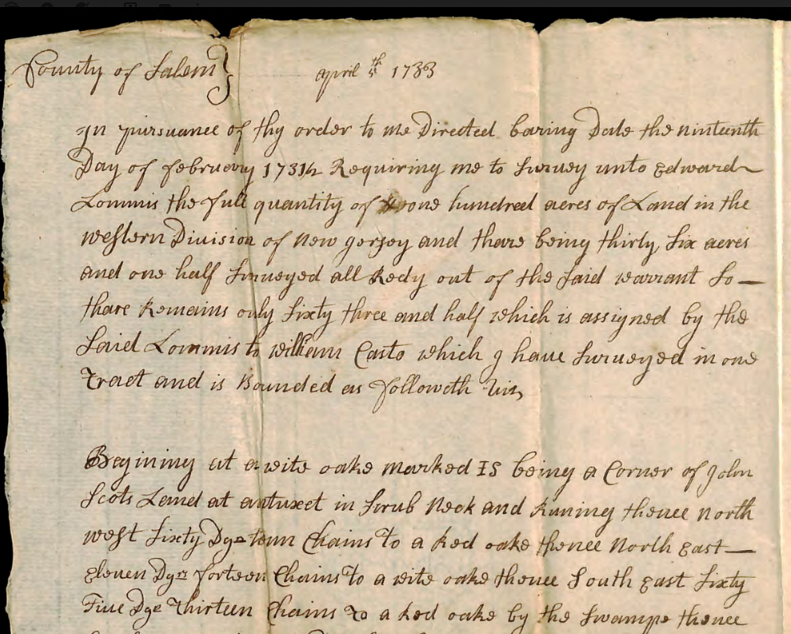 County of Salem }
april th 1733
In pursuance of thy order to me Directed baring Date the ninteenth
Day of february 1731/2 Requiring me to Survey unto Edward
Lommis the full quantity of one hundred acres of Land in the
western Division of New gersey and thare being thirty six acres
and one half Surveyed all Redy out of the said warrant So
thare Remains only sixty three and half which is assigned by the
Said Lommis to william Casto which I have Surveyed in one
Tract and is Bounded as followeth viz
Begining at a wite oake marked IS being a Corner of John
Scots Land at antuxet in Scrub Neck and Runing thence North
west sixty Dgs tenn Chains to a Red oake thence North East
Eleven Dgs forteen Chains to a wite oake thence South East Sixty
Five Dge Thirteen Chains to a Red oake by the Swampe thence